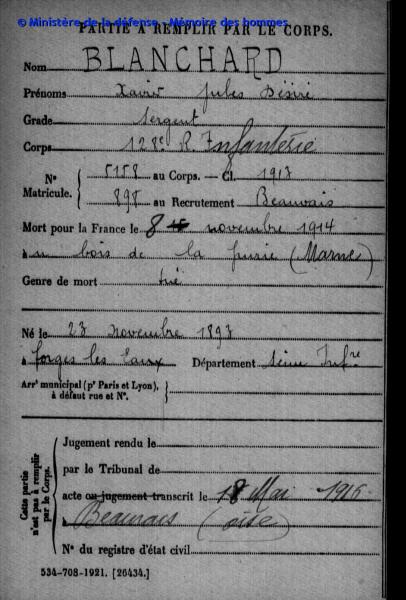 © Ministère de la défense - Mémoire des hommes
PARTIE A REMPLIR PAR LE CORPS.
Nom BLANCHARD
Prénoms Xavier Jules Désiré
Grade Sergent
Corps 128e R. Infanterie
N° 5158 au Corps. — Cl. 1913
Matricule. 898 au Recrutement Beauvais
Mort pour la France le 8 novembre 1914
à u bois de la (Marne)
Genre de mort tué
Né le 23 novembre 1893
à forges les Eaux Département Seine Infre
Arrt municipal (pr Paris et Lyon), à défaut rue et N°.
Cette partie n'est pas à remplir par le Corps.
Jugement rendu le
par le Tribunal de
acte ou jugement transcrit le 18 Mai 1916
à Beauvais (oise)
N° du registre d'état civil
534-708-1921. [26434.]